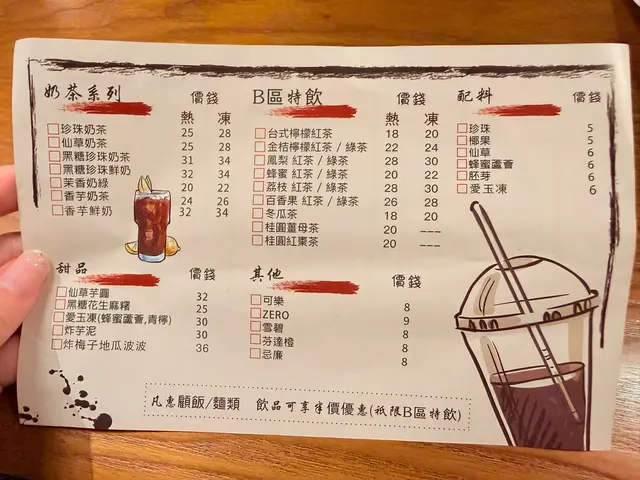 奶茶系列 價錢
熱 凍
珍珠奶茶 25 28
仙草奶茶 25 28
黑糖珍珠奶茶 31 34
黑糖珍珠鮮奶 32 34
茉香奶綠 20 22
香芋奶茶 24 26
香芋鮮奶 32 34
B區特飲 價錢
熱 凍
台式檸檬紅茶 18 20
金桔檸檬紅茶 / 綠茶 22 24
鳳梨 紅茶 / 綠茶 28 30
蜂蜜 紅茶 / 綠茶 20 22
荔枝 紅茶 / 綠茶 28 30
百香果 紅茶 / 綠茶 26 28
冬瓜茶 18 20
桂圓薑母茶 20 ---
桂圓紅棗茶 20 ---
配料 價錢
珍珠 5
椰果 5
仙草 6
蜂蜜蘆薈 6
胚芽 6
愛玉凍 6
甜品 價錢
仙草芋圓 32
黑糖花生麻糬 25
愛玉凍(蜂蜜蘆薈,青檸) 30
炸芋泥 30
炸梅子地瓜波波 36
其他 價錢
可樂 8
ZERO 9
雪碧 8
芬達橙 8
忌廉 8
凡惠顧飯/麵類 飲品可享半價優惠(祇限B區特飲)